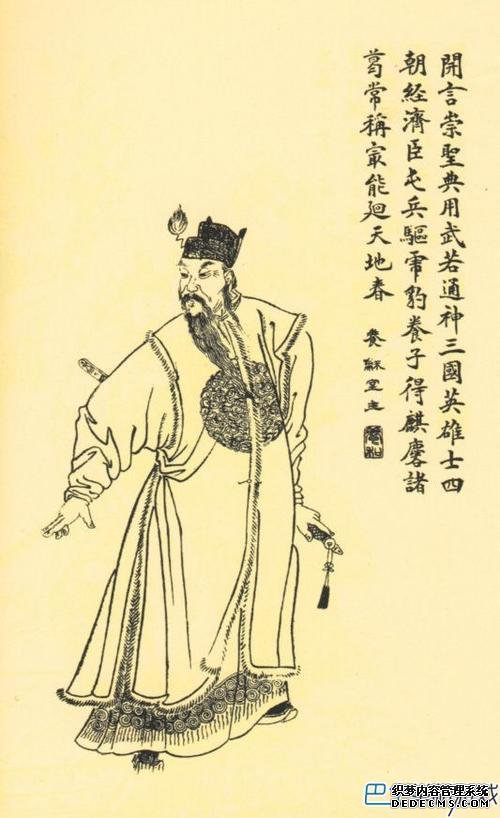 開言崇聖典用武若通神三國英雄士四
朝經濟臣屯兵驅乕豹養子得麒麐諸
葛常稱㝡能廻天地春
養龢室主
巴
织梦内容管理系统
DEDECMS.COM